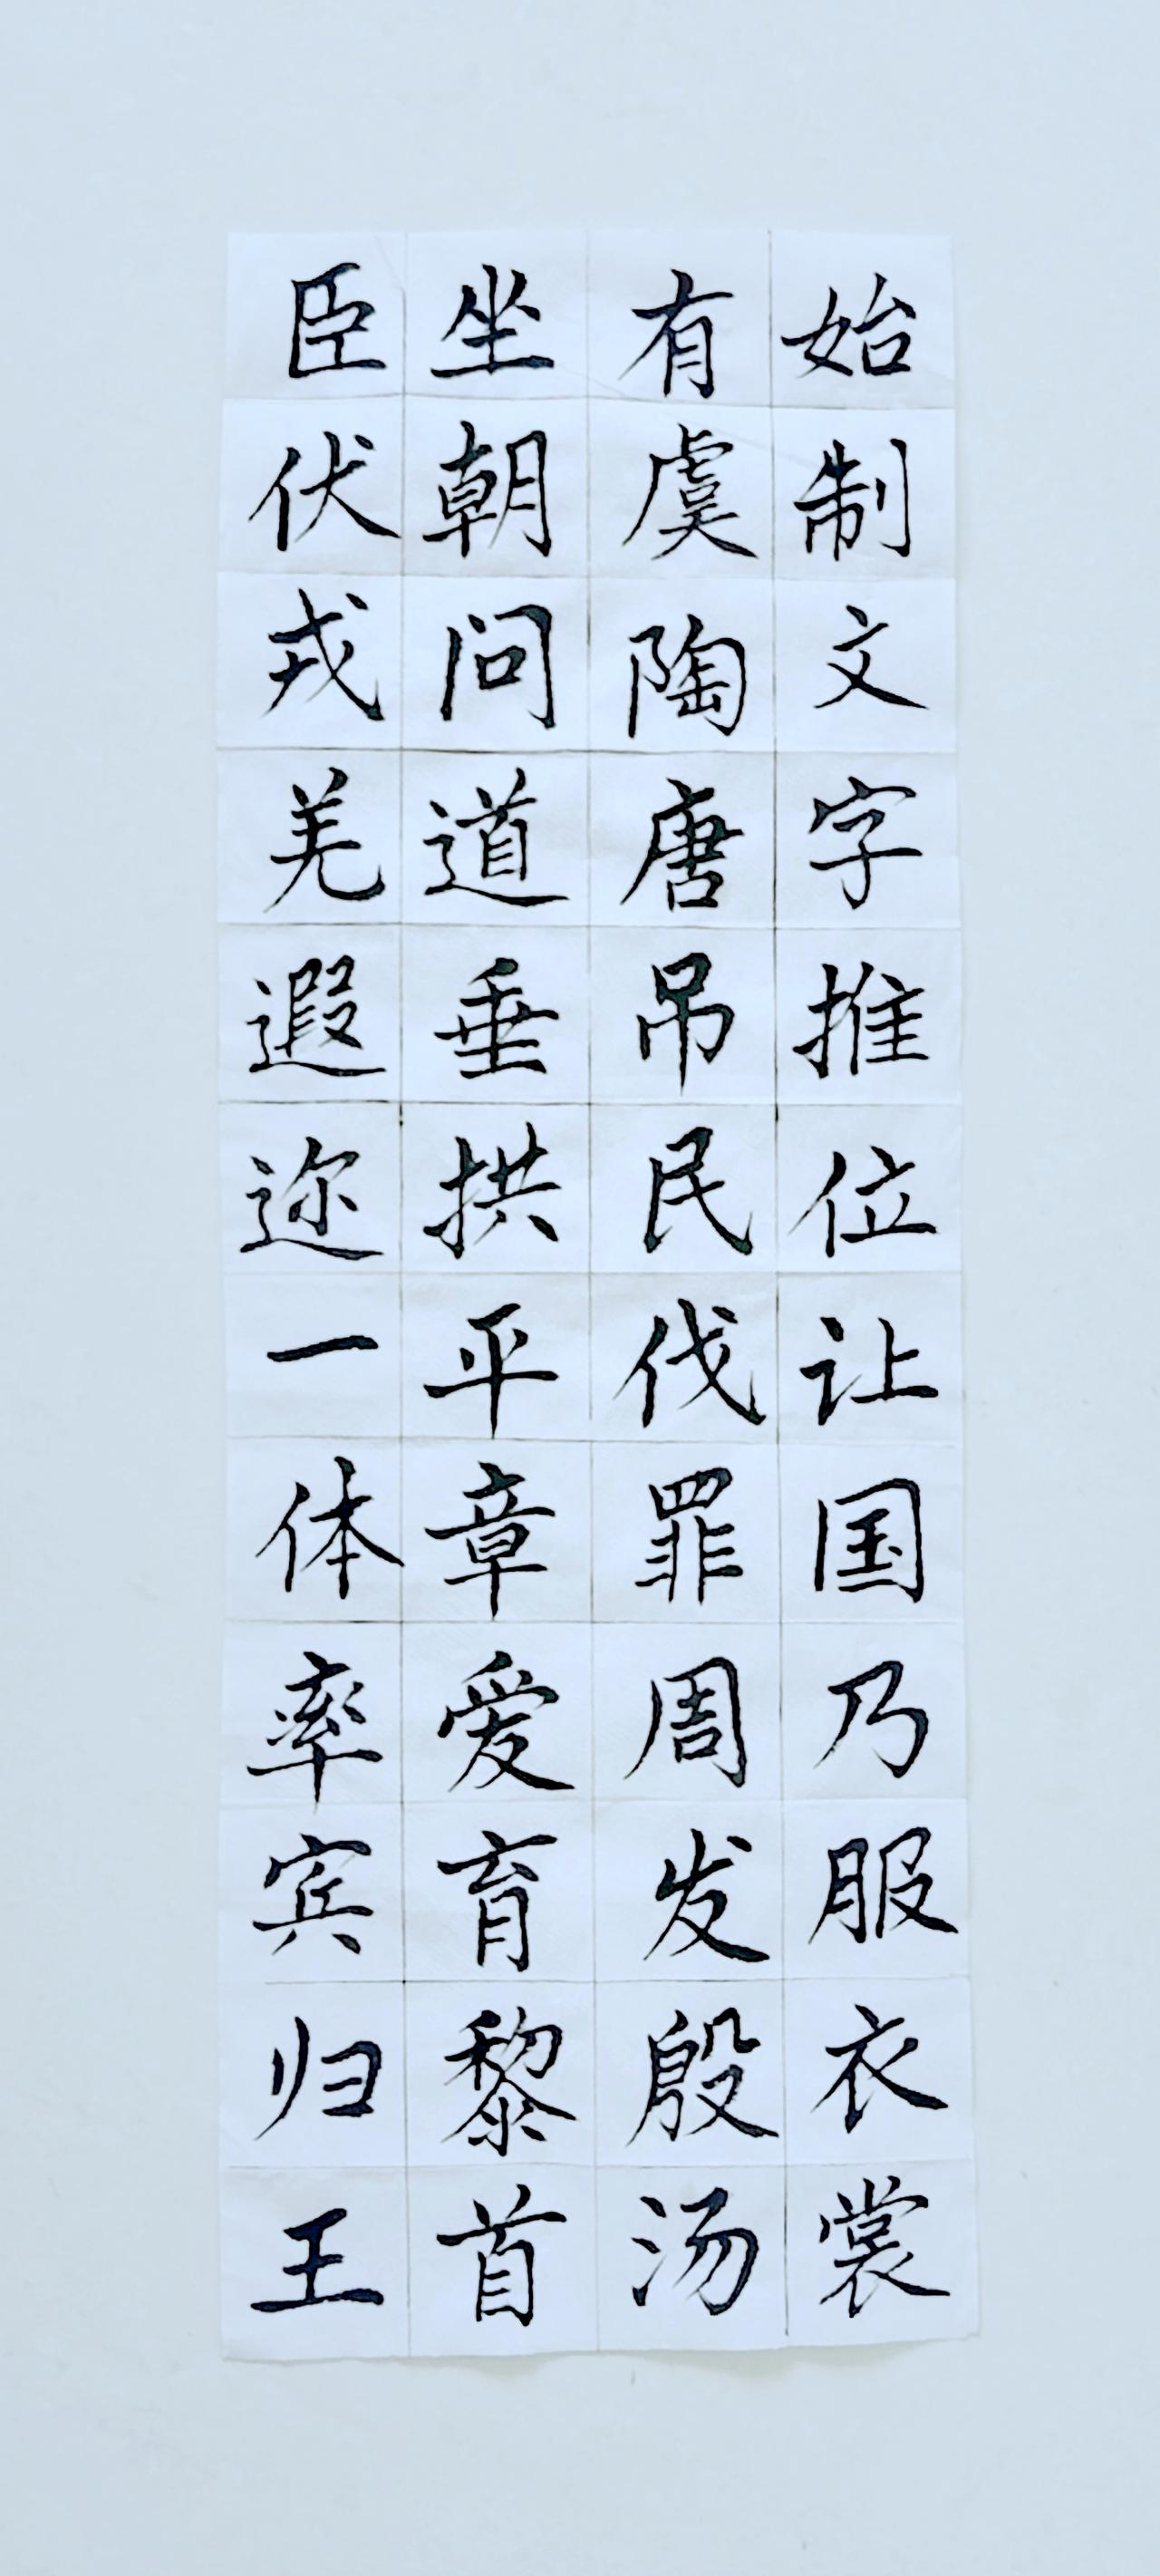 始制文字推位让国乃服衣裳
有虞陶唐吊民伐罪周发殷汤
坐朝问道垂拱平章爱育黎首
臣伏戎羌遐迩一体率宾归王